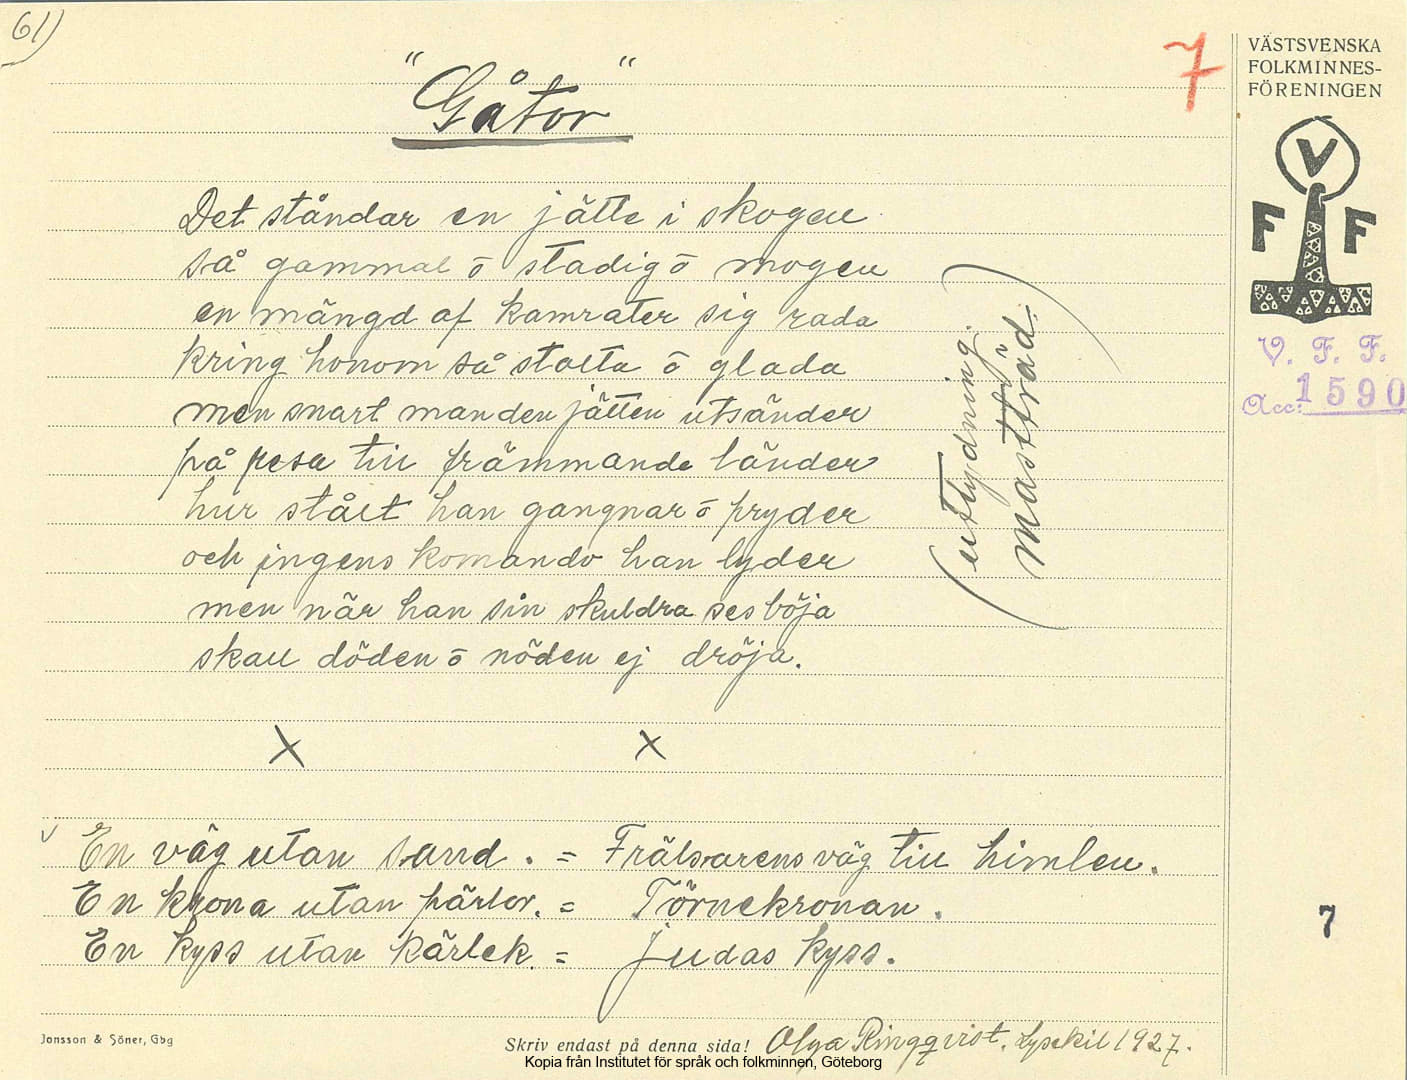 61)
7
VÄSTSVENSKA
FOLKMINNES-
FÖRENINGEN
V
F F
V. F. F.
Acc: 1590
"Gåtor"
Det ståndar en jätte i skogen
så gammal ō stadig ō mogen
en mängd af kamrater sig rada
kring honom så stolta ō glada
men snart man den jätten utsänder
på resa till främmande länder
hur stålt han gangnar ō pryder
och ingens komando han lyder
men när han sin skuldra ses böja
skall döden ō nöden ej dröja.
(uttydning.
mastträd.)
x x
En väg utan sand. = Frälsarens väg till himlen.
En krona utan pärlor. = Törnekronan.
En kyss utan kärlek. = Judas kyss.
7
Jonsson & Söner, Gbg
Skriv endast på denna sida!
Olga Ringqvist. Lysekil 1927.
Kopia från Institutet för språk och folkminnen, Göteborg